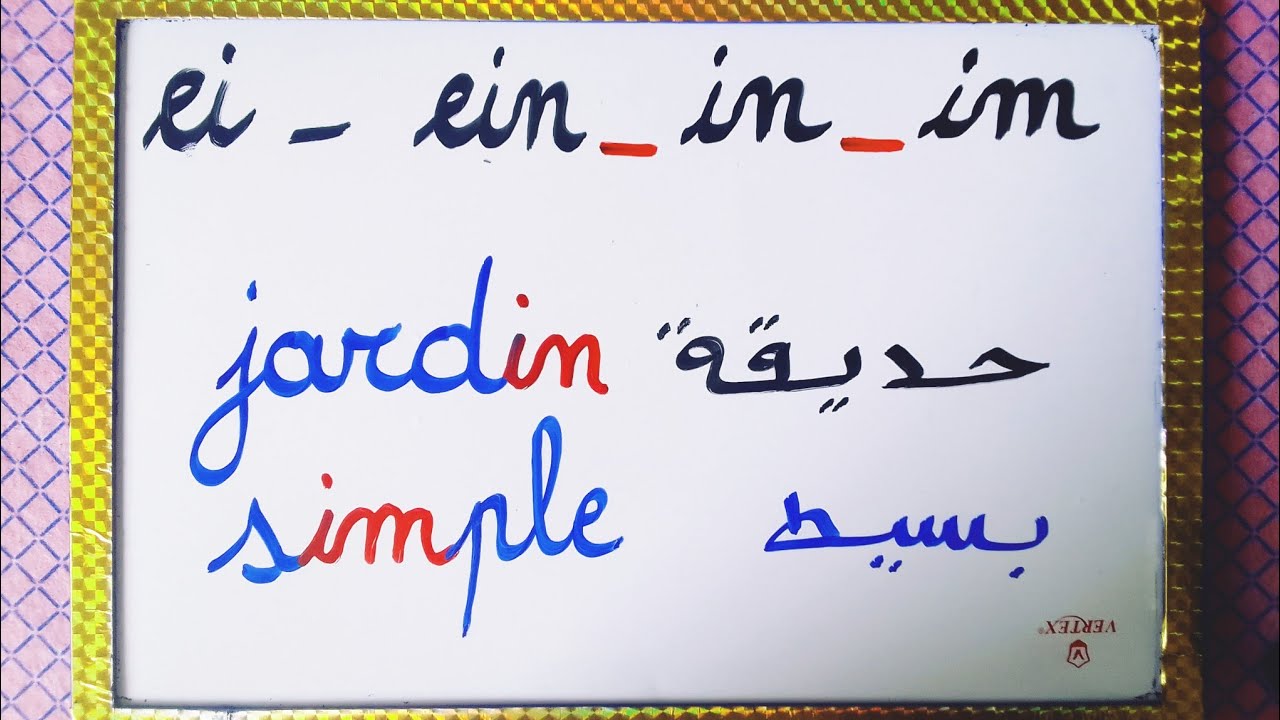 ei - ein _ in _ im
jardin حديقة
simple بسيط
VERTEX®